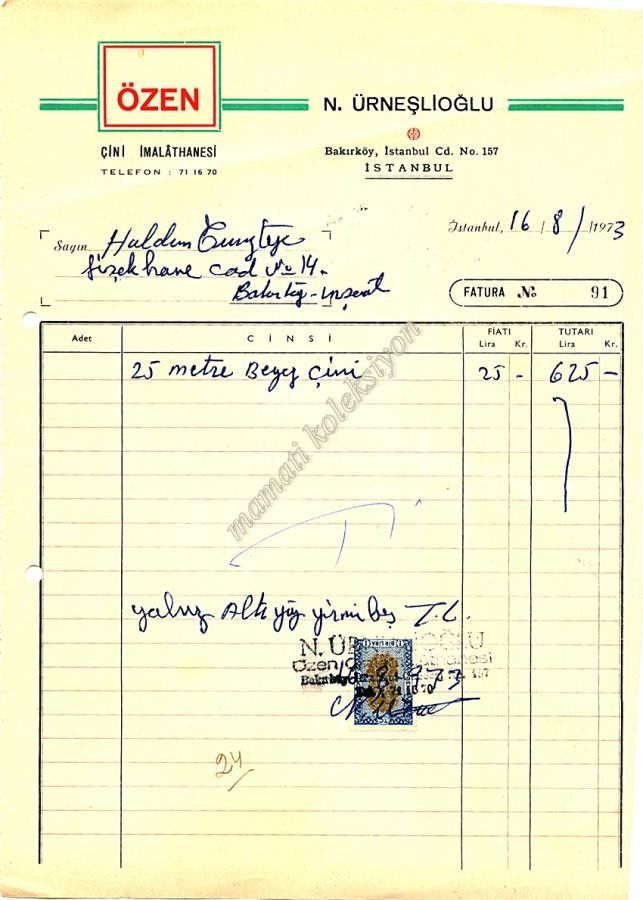 ÖZEN
ÇİNİ İMALÂTHANESİ
TELEFON : 71 16 70
N. ÜRNEŞLİOĞLU
Bakırköy, İstanbul Cd. No. 157
İSTANBUL
İstanbul, 16 / 8 / 1973
Sayın Haldun
Fişekhane cad No 14.
Bakırköy -
FATURA No 91
Adet CİNSİ FİATI TUTARI
Lira Kr. Lira Kr.
25 metre Beyaz Çini 25 - 625 -
mamati koleksiyon
yalnız Altı yüz yirmi beş T.L.
N. ÜRNEŞLİOĞLU
Özen
157
71 16 70
24